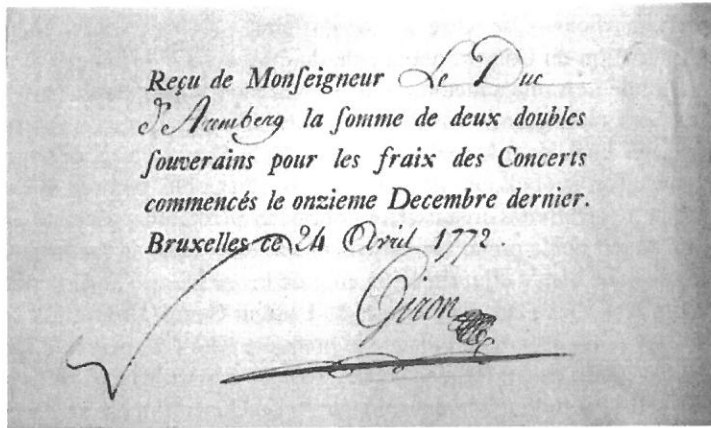 Reçu de Monſeigneur Le Duc
d'Aremberg la ſomme de deux doubles
ſouverains pour les fraix des Concerts
commencés le onzieme Decembre dernier.
Bruxelles ce 24 Avril 1772.
Giron